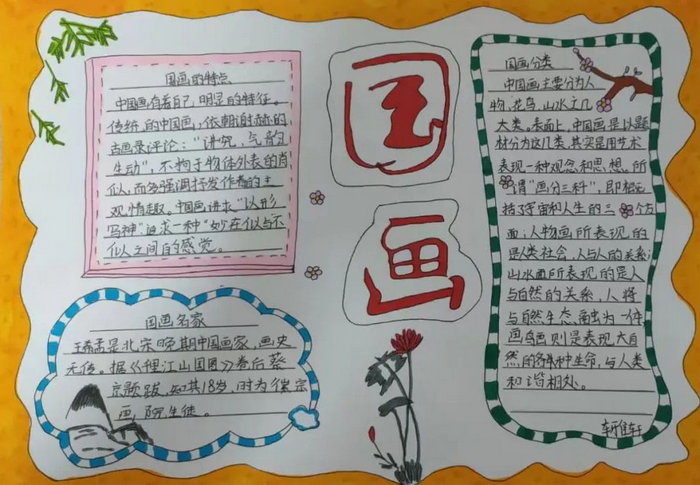 国画
国画的特点
中国画有着自己明显的特征。
传统的中国画，依朝谢赫的
古画录评论："讲究，气韵
生动"，不拘于物体外表的肖
似，而多强调抒发作者的主
观情趣。中国画讲求"以形
写神"，追求一种"妙在似与不
似之间"的感觉。
国画名家
王希孟是北宋晚期中国画家，画史
无传。据《千里江山图》卷后蔡
京题跋，知其18岁，时为徽宗
画院生徒。
国画分类
中国画主要分为人
物、花鸟、山水这几
大类。表面上，中国画是以题
材分为这几类，其实是用艺术
表现一种观念和思想。所
谓"画分三科"，即概
括了宇宙和人生的三个方
面：人物画所表现的
是人类社会，人与人的关系；
山水画所表现的是人
与自然的关系，人将
与自然生态融为一体
画鸟画则是表现大自
然的各种生命，与人类
和谐相处。